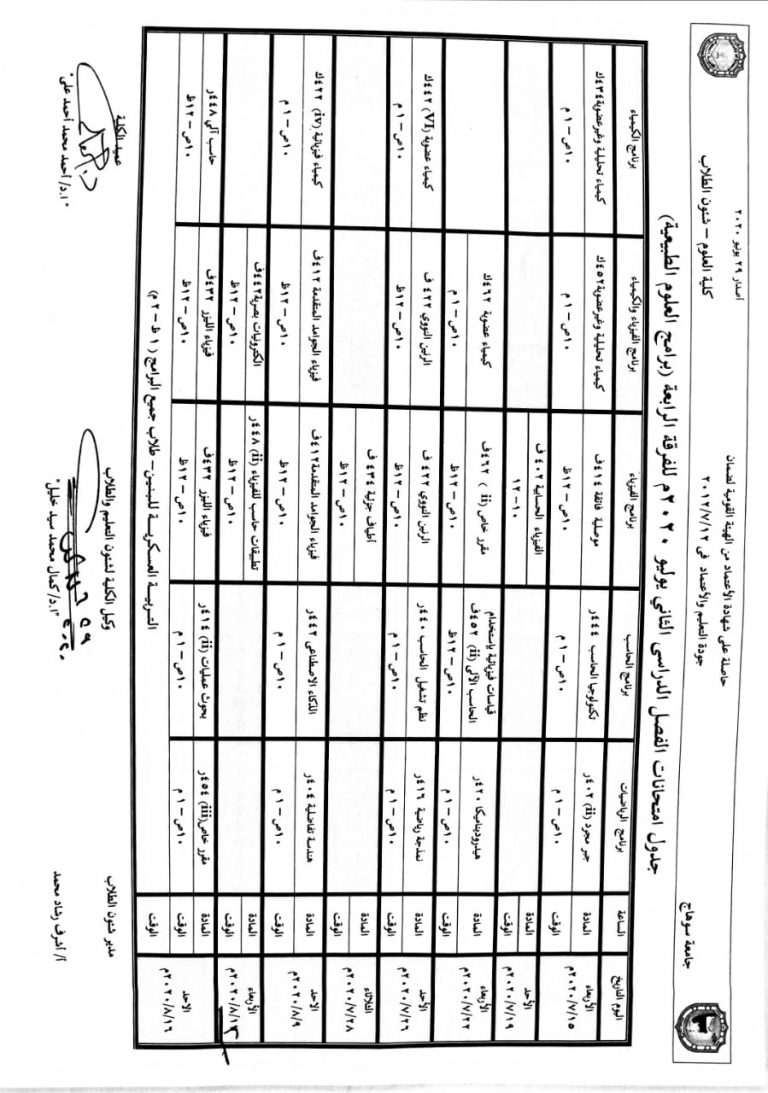 جامعة سوهاج
حاصلة على شهادة الأعتماد من الهيئة القومية لضمان
جودة التعليم والأعتماد فى ٢٠١٢/٧/١٢
أصدار ٢٩ يونيو ٢٠٢٠
كلية العلوم – شئون الطلاب
جدول امتحانات الفصل الدراسى الثاني يوليو ٢٠٢٠م للفرقة الرابعة (برامج العلوم الطبيعية)
اليوم التاريخ الساعة برنامج الرياضيات برنامج الحاسب برنامج الفيزياء برنامج الفيزياء والكيمياء برنامج الكيمياء
الأربعاء ٢٠٢٠/٧/١٥م
المادة جبر مجرد (ii) ٤٠٢ر تكنولوجيا الحاسب ٤٤٤ر موصلية فائقة ٤١٤ف كيمياء تحليلية وغيرعضوية٤٥٢ك كيمياء تحليلية وغيرعضوية٤٣٤ك
الوقت ١٠ص – ١م ١٠ص – ١م ١٠ص – ١٢ظ ١٠ص – ١م ١٠ص – ١م
الأحد ٢٠٢٠/٧/١٩م
المادة الفيزياء الحسابية ٤٠٢ف
الوقت ١٠–١٢
الأربعاء ٢٠٢٠/٧/٢٢م
المادة هيدروديناميكا ٤٢٠ر قياسات فيزيائية بإستخدام الحاسب الآلى (ii) ٤٥٢ف مقرر خاص (ii) ٤٦٢ف كيمياء عضوية ٤٦٢ك
الوقت ١٠ص – ١م ١٠ص – ١٢ظ ١٠ص – ١٢ظ ١٠ص – ١م
الأحد ٢٠٢٠/٧/٢٦م
المادة نمذجة رياضية ٤١٦ر نظم تشغيل الحاسب ٤٤٠ر الرنين النووي ٤٢٢ف الرنين النووي ٤٢٢ف كيمياء عضوية (VI) ٤٤٢ك
الوقت ١٠ص – ١م ١٠ص – ١م ١٠ص – ١٢ظ ١٠ص – ١٢ظ ١٠ص – ١م
الثلاثاء ٢٠٢٠/٧/٢٨م
المادة أطياف جزئية ٤٣٤ف
الوقت ١٠ص – ١٢ظ
الاحد ٢٠٢٠/٨/٩م
المادة هندسة تفاضلية ٤٠٤ر الذكاء الاصطناعى ٤٤٢ر فيزياء الجوامد المتقدمة٤١٢ف فيزياء الجوامد المتقدمة ٤١٢ف كيمياء فيزيائية (iv) ٤٢٢ك
الوقت ١٠ص – ١م ١٠ص – ١م ١٠ص – ١٢ظ ١٠ص – ١٢ظ ١٠ص – ١م
الأربعاء ٢٠٢٠/٨/١٢م
المادة تطبيقات حاسب للفيزياء (ii) ٤٤٨ر الكترونيات بصرية٤٤٢ف
الوقت ١٠ص – ١٢ظ ١٠ص – ١٢ظ
الاحد ٢٠٢٠/٨/١٦م
المادة مقرر خاص(iii) ٤٥٤ر بحوث عمليات (ii) ٤١٤ر فيزياء الليزر ٤٣٢ف فيزياء الليزر ٤٣٢ف حاسب آلى ٤٤٨ر
الوقت ١٠ص – ١م ١٠ص – ١م ١٠ص – ١٢ظ ١٠ص – ١٢ظ ١٠ص – ١٢ظ
التربية العسكرية للبنين– طلاب جميع البرامج (١ظ – ٢م)
مدير شئون الطلاب
أ/ أشرف رشاد محمد
وكيل الكلية لشئون التعليم والطلاب
أ.د/ كمال محمد سيد خليل"
عميد الكلية
"ا.د/ أحمد محمد أحمد على"